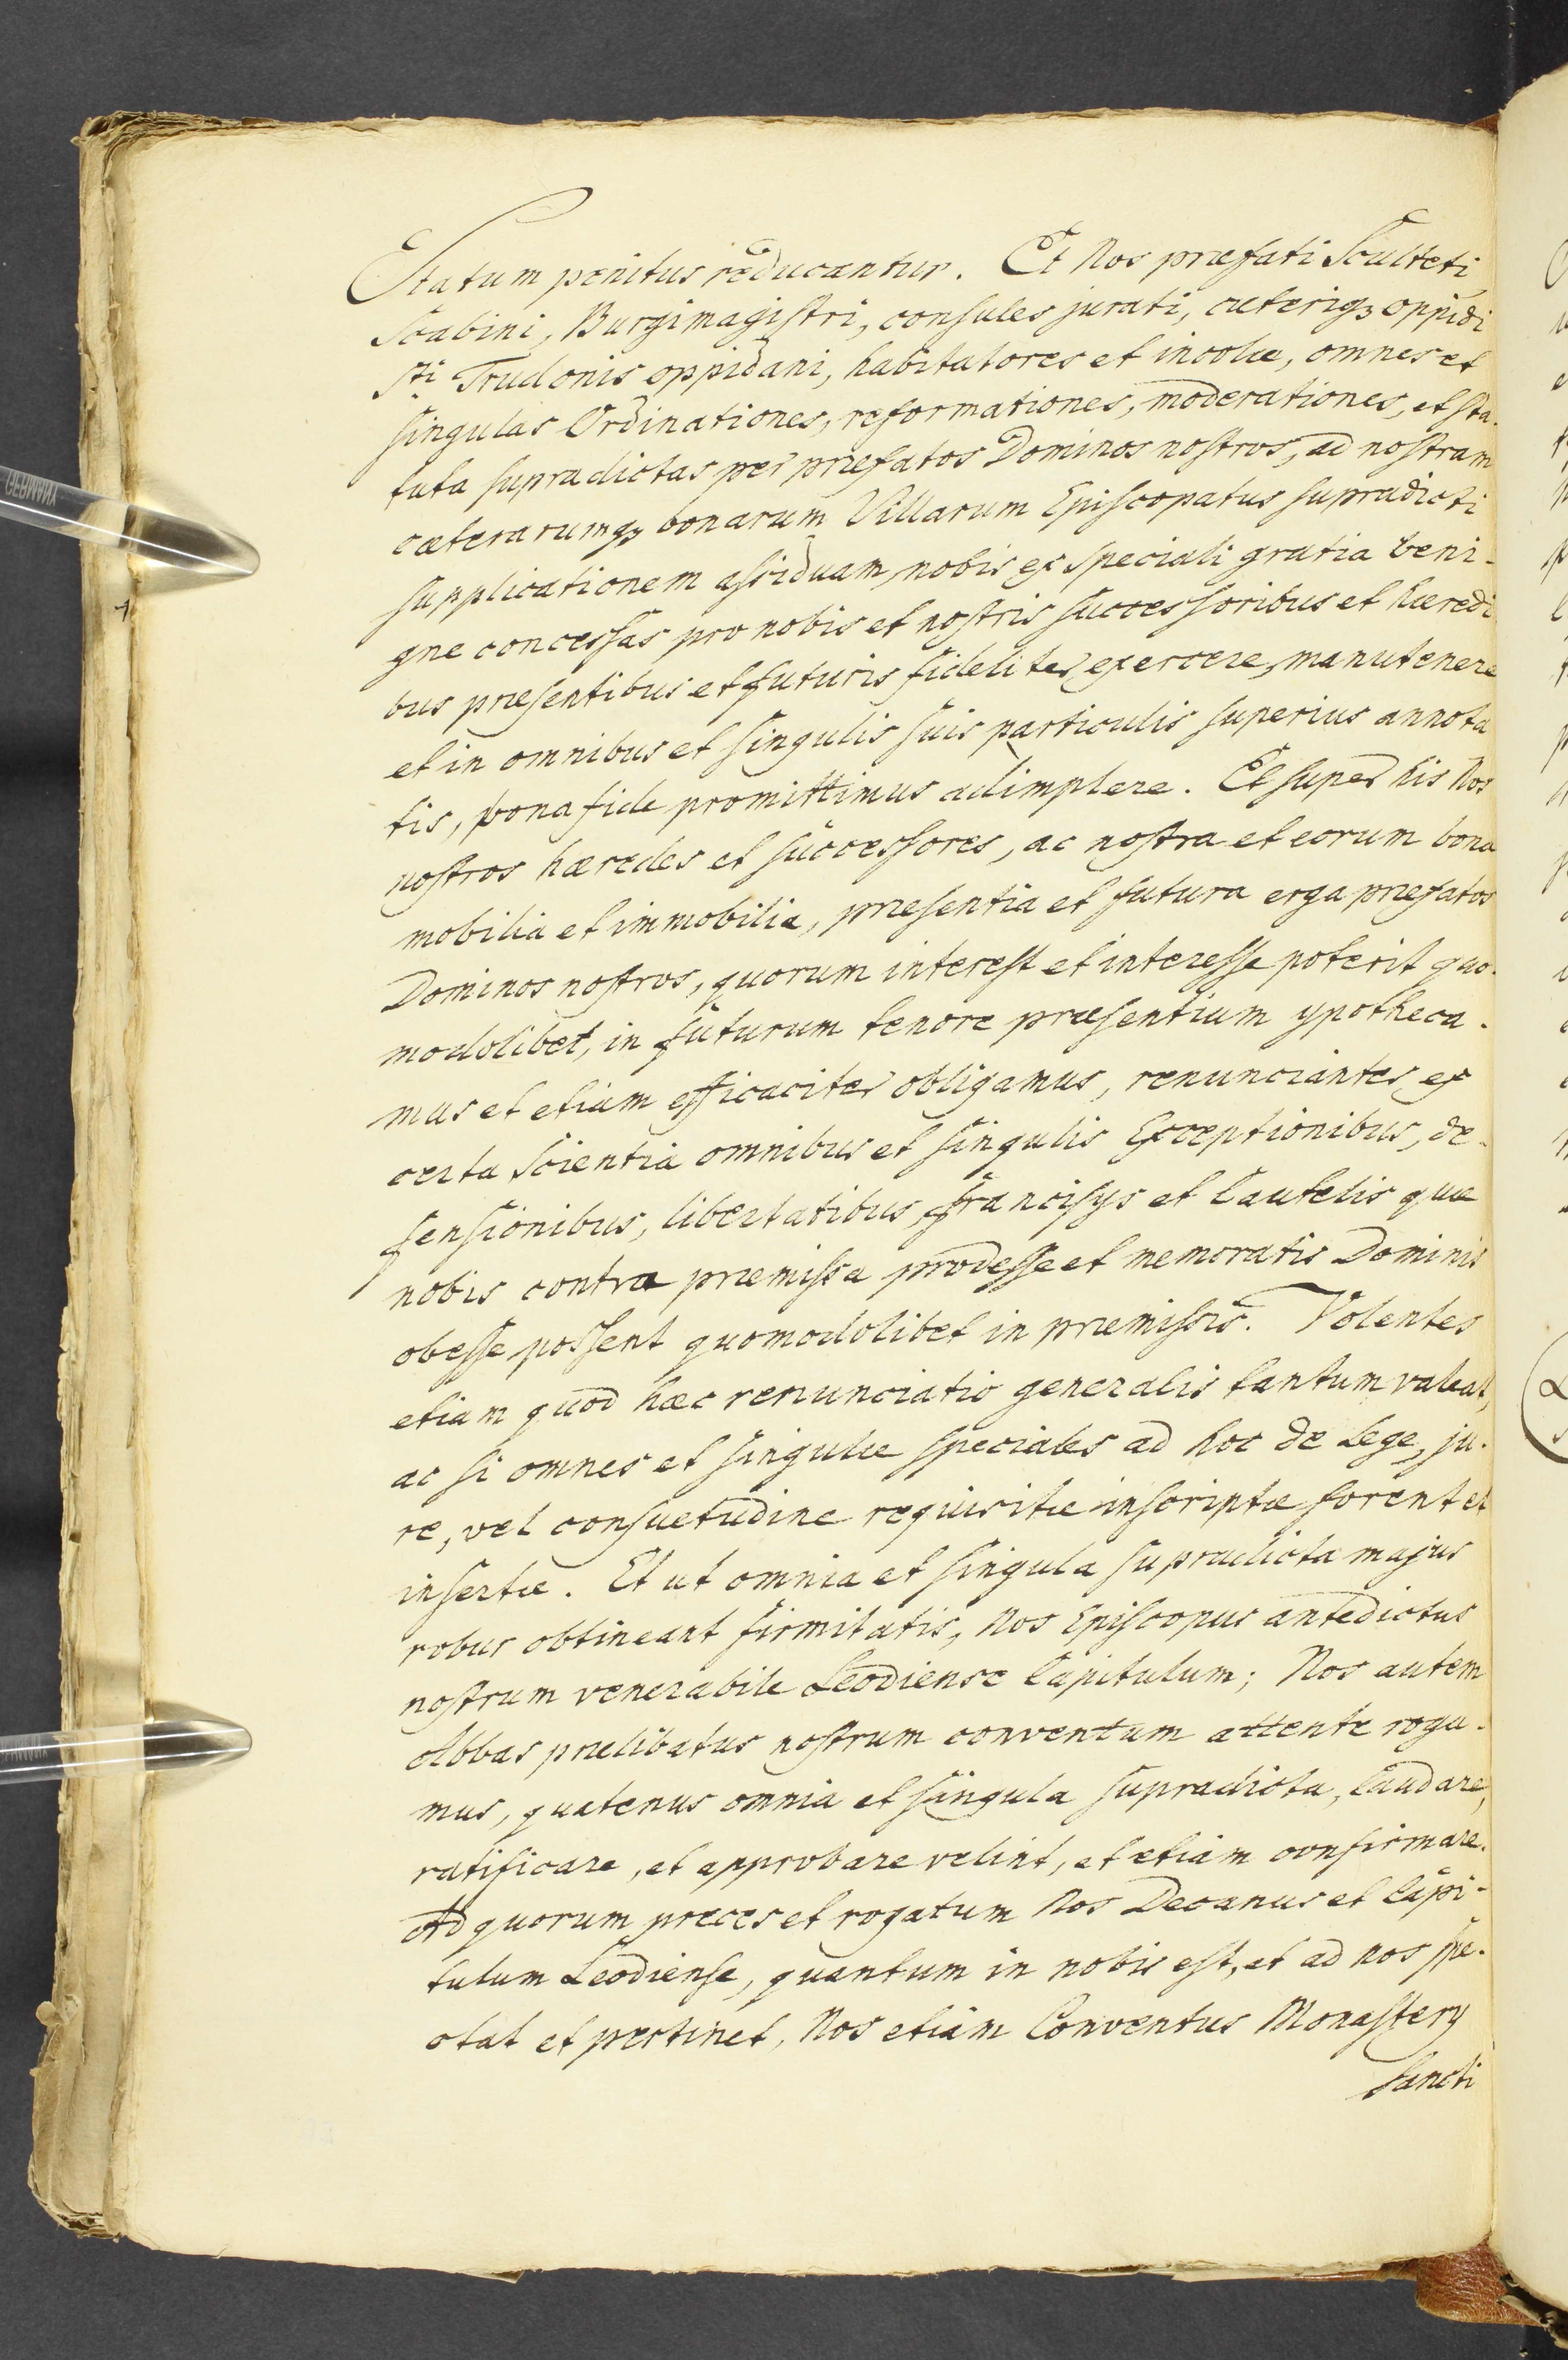 Statum penitus reducantur. Et Nos præfati Sculteti
Scabini, Burgimagistri, consules jurati, cæteriq3 oppidi
Sti Trudonis oppidani, habitatores et incolæ, omnes et
singulas Ordinationes, reformationes, moderationes, et sta-
tuta supradictas per præfatos Dominos nostros, ad nostram
cæterarumq3 bonarum Villarum Episcopatus supradicti
supplicationem assiduam, nobis ex speciali gratia beni-
gne concessas pro nobis et nostris successoribus et hæredi
bus præsentibus et futuris fideliter exercere, manutenere
et in omnibus et singulis suis particulis superius annota
tis, bona fide promittimus adimplere. Et super his Nos
nostros hæredes et successores, ac nostra et eorum bona
mobilia et immobilia, præsentia et futura erga præfatos
Dominos nostros, quorum interest et interesse poterit quo-
modolibet, in futurum tenore præsentium ypotheca-
mus et etiam efficaciter obligamus, renunciantes ex
certa Scientia omnibus et singulis Exceptionibus, de-
fensionibus, libertatibus francisijs et Cautelis quæ
nobis contra præmissa prodesse et memoratis Dominis
obesse possent quomodolibet in præmissis. Volentes
etiam quod hæc renunciatio generalis tantum valeat,
ac si omnes et singulæ speciales ad hoc de Lege, ju-
re, vel consuetudine requisitæ inscriptæ forent et
insertæ. Et ut omnia et singula supradicta majus
robur obtineant firmitatis, Nos Episcopus antedictus
nostrum venerabile Leodiense Capitulum; Nos autem
Abbas prælibatus nostrum conventum attente roga-
mus, quatenus omnia et singula supradicta, laudare,
ratificare, et approbare velint, et etiam confirmare.
Ad quorum preces et rogatum Nos Decanus et Capi-
tulum Leodiense, quantum in nobis est, et ad nos spe-
ctat et pertinet, Nos etiam Conventus Monasterij
Sancti